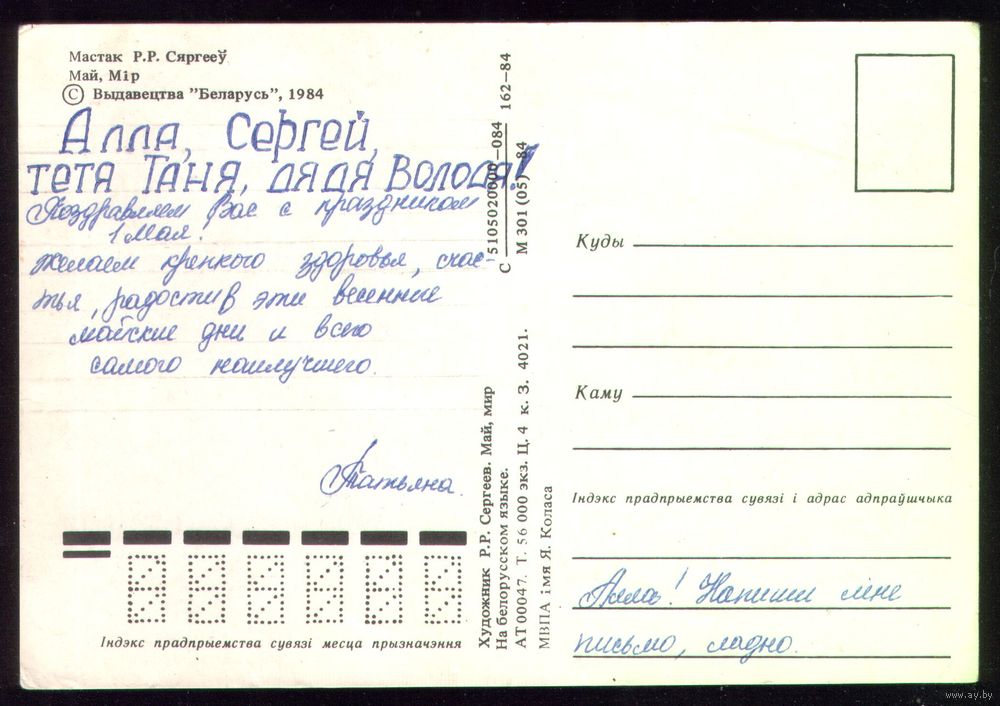 Мастак Р.Р. Сяргееў
Май, Мір
© Выдавецтва "Беларусь", 1984
Алла, Сергей,
тетя Таня, дядя Володя!
Поздравляем Вас с праздником
1 Мая!
Желаем крепкого здоровья, счас-
тья, радости в эти весенние
майские дни и всего
самого наилучшего.
Татьяна.
Індэкс прадпрыемства сувязі месца прызначэння
С 5105020000—084 162—84
М 301 (05)—84
Художник Р.Р. Сергеев. Май, мир
На белорусском языке.
АТ 00047. Т. 56 000 экз. Ц. 4 к. З. 4021.
МВПА імя Я. Коласа
Куды
Каму
Індэкс прадпрыемства сувязі і адрас адпраўшчыка
Алла! Напиши мне
письмо, ладно.
www.ay.by